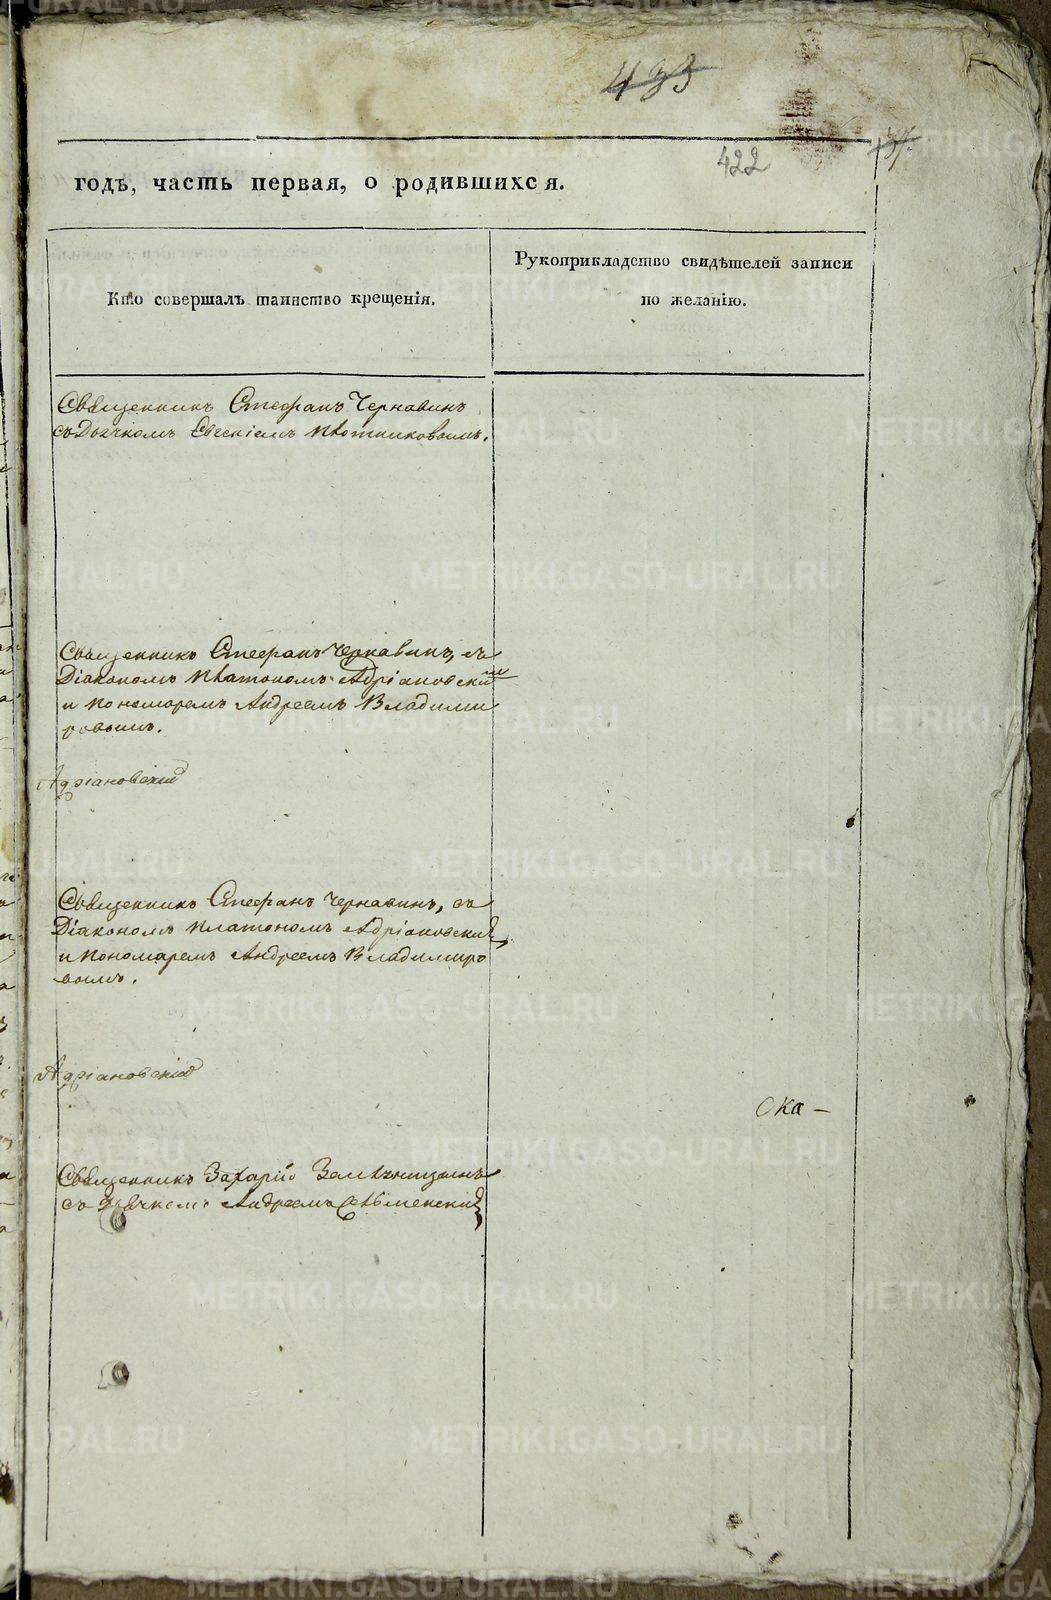 433
422
годъ, часть первая, о родившихся.
Кто совершалъ таинство крещенія.
Рукоприкладство свидѣтелей записи
по желанію.
Священникъ Стефанъ Чернавинъ
съ Дьячкомъ Евсевіемъ Плотниковымъ.
Священникъ Стефанъ Чернавинъ, съ
Діакономъ Платономъ Адріановским
и пономаремъ Андреемъ Владими
ровымъ.
Адріановскій
Священникъ Стефанъ Чернавинъ, съ
Діакономъ Платономъ Адріановским
и пономаремъ Андреемъ Владимиро
вымъ.
Адріановскій
Ска-
Священникъ Захарій
съ Дьячкомъ Андреемъ
METRIKI.GASO-URAL.RU